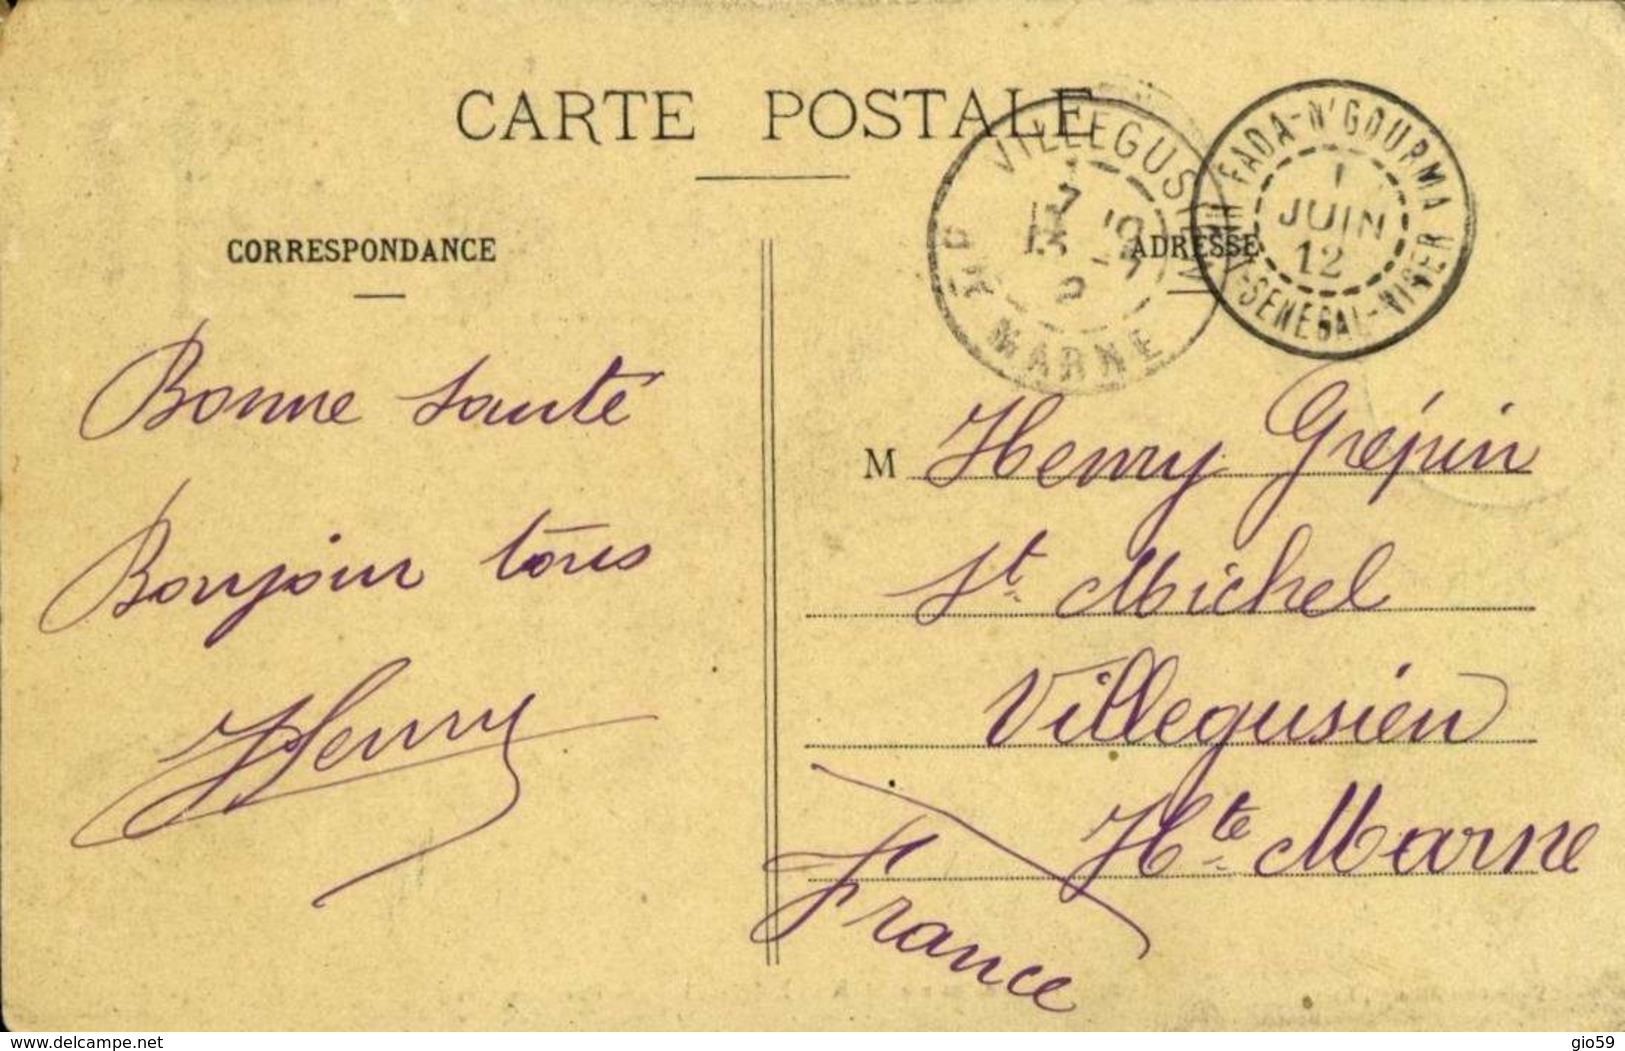 CARTE POSTALE
CORRESPONDANCE
ADRESSE
VILLEGUSIEN
Hte MARNE
FADA-N'GOURMA
1
JUIN
12
HAUT-SENEGAL-NIGER
Bonne santé
Bonjour tous
Henry
M Henry Grépin
St. Michel
Villegusien
Hte Marne
France
www.delcampe.net
gio59